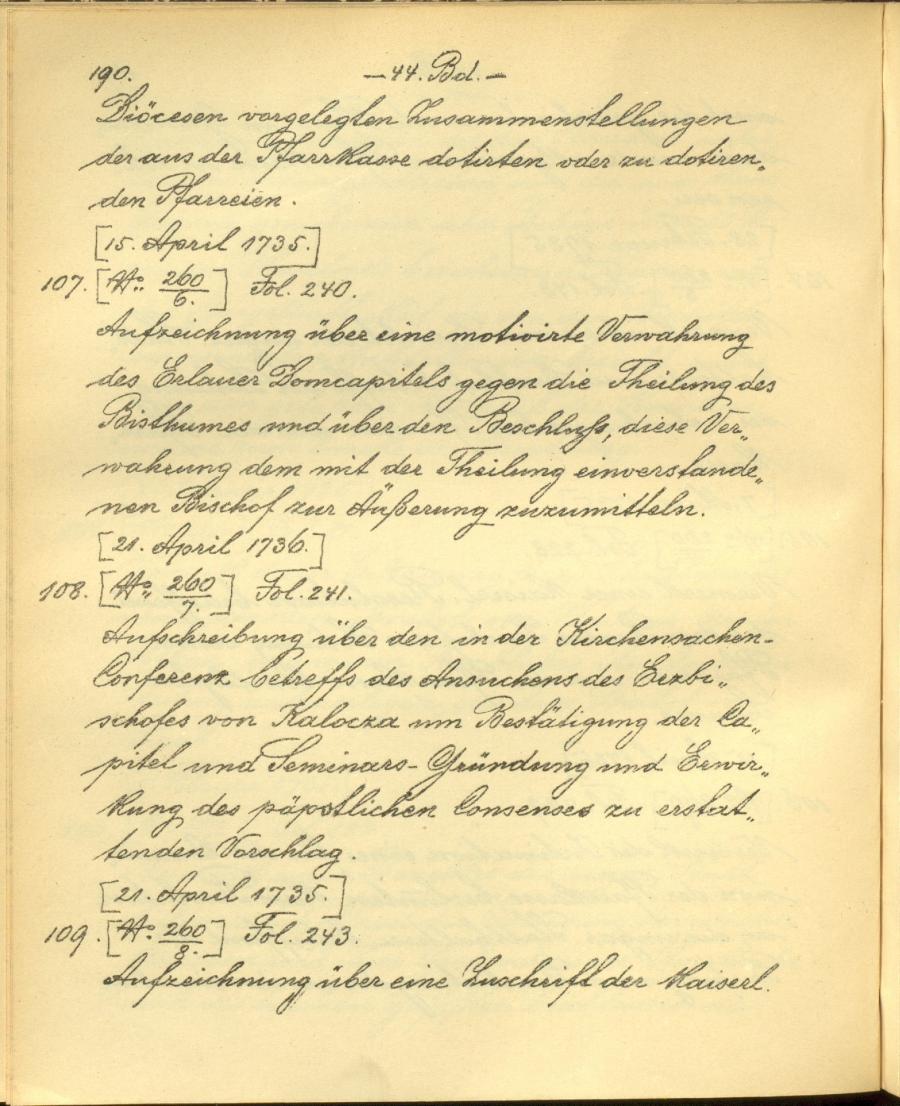 190. — 44. Bd. —
Diöcesen vorgelegten Zusammenstellungen
der aus der Pfarrkasse dotirten oder zu dotiren„
den Pfarreien.
[15. April 1735.]
107. [No. 260/6.] Fol. 240.
Aufzeichnung über eine motivirte Verwahrung
des Erlauer Domcapitels gegen die Theilung des
Bisthumes und über den Beschluß, diese Ver„
wahrung dem mit der Theilung einverstande„
nen Bischof zur Äußerung zuzumitteln.
[21. April 1736.]
108. [No. 260/7.] Fol. 241.
Aufschreibung über den in der Kirchensachen-
Conferenz betreffs des Ansuchens des Erzbi„
schofes von Kalocza um Bestätigung der Ca„
pitel und Seminars-Gründung und Erwir„
kung des päpstlichen Consenses zu erstat„
tenden Vorschlag.
[21. April 1735.]
109. [No. 260/8.] Fol. 243.
Aufzeichnung über eine Zuschrift der Kaiserl.